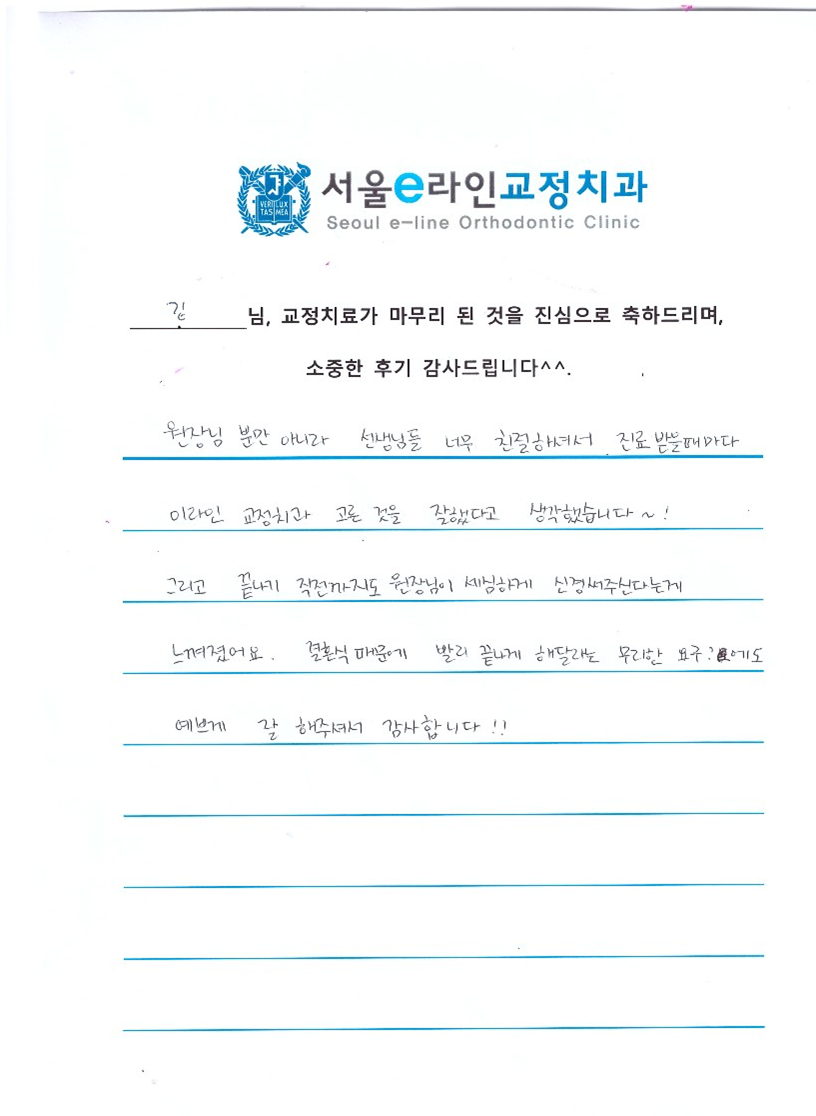 서울e라인교정치과
VERI LUX
TAS MEA
Seoul e-line Orthodontic Clinic
김 님, 교정치료가 마무리 된 것을 진심으로 축하드리며,
소중한 후기 감사드립니다^^.
원장님 뿐만 아니라 선생님들 너무 친절하셔서 진료 받을때마다
이라인 교정치과 고른 것을 잘했다고 생각했습니다~!
그리고 끝나기 직전까지도 원장님이 세심하게 신경써주신다는게
느껴졌어요. 결혼식 때문에 빨리 끝나게 해달라는 무리한 요구?에도
예쁘게 잘 해주셔서 감사합니다!!